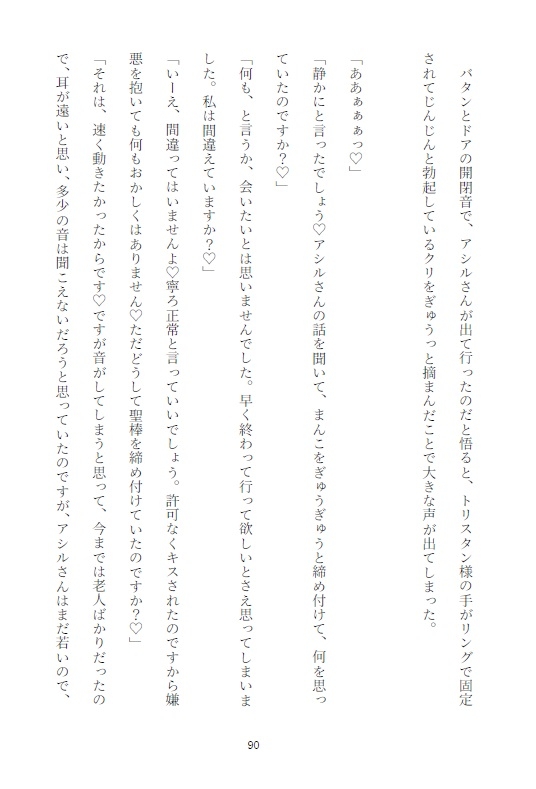 バタンとドアの開閉音で、アシルさんが出て行ったのだと悟ると、トリスタン様の手がリングで固定
されてじんじんと勃起しているクリをぎゅうっと摘まんだことで大きな声が出てしまった。
「ああぁぁぁっ♡」
「静かにと言ったでしょう♡アシルさんの話を聞いて、まんこをぎゅうぎゅうと締め付けて、何を思っ
ていたのですか？♡」
「何も、と言うか、会いたいとは思いませんでした。早く終わって行って欲しいとさえ思ってしまいま
した。私は間違えていますか？♡」
「いーえ、間違ってはいませんよ♡寧ろ正常と言っていいでしょう。許可なくキスされたのですから嫌
悪を抱いても何もおかしくはありません♡ただどうして聖棒を締め付けていたのですか？♡」
「それは、速く動きたかったからです♡ですが音がしてしまうと思って、今までは老人ばかりだったの
で、耳が遠いと思い、多少の音は聞こえないだろうと思っていたのですが、アシルさんはまだ若いので、
90